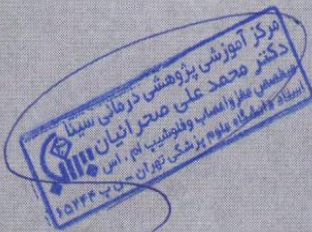 مرکز آموزشی پژوهشی درمانی سینا
دکتر محمد علی صحرائیان
متخصص مغز و اعصاب و فلوشیپ ام . اس
استاد دانشگاه علوم پزشکی تهران - ن پ ۶۵۲۴۴